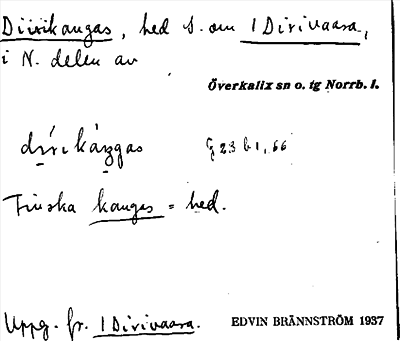 Diirikangas, hed S. om 1 Dirivaara,
i N. delen av
Överkalix sn o. tg Norrb. l.
G 23 b 1, 66
Finska kangas = hed.
Uppg. fr. 1 Dirivaara. EDVIN BRÄNNSTRÖM 1937